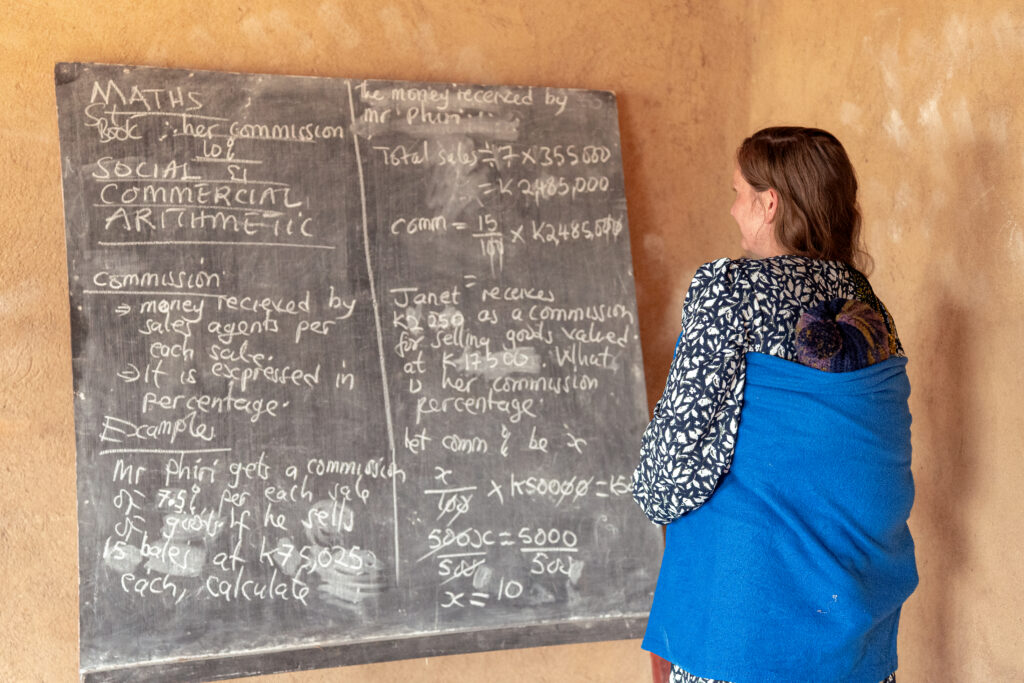 MATHS
Book : her commission
10%
SOCIAL &
COMMERCIAL
ARITHMETIC
Commission
⇒ money recieved by
sales agents per
each sale.
⇒ It is expressed in
percentage.
Example
Mr Phiri gets a commission
of 7.5% per each sale
of goods. If he sells
15 bales at K75,025
each, calculate
The money received by
Mr Phiri
Total sales = 7 x 355000
= K2,485,000
comm = 15/100 x K2485,000
=
Janet receives
K2250 as a commission
for selling goods valued
at K17500. What
is her commission
percentage.
let comm % be x
x/100 x K50000 = K50
500x/500 = 5000/500
x = 10